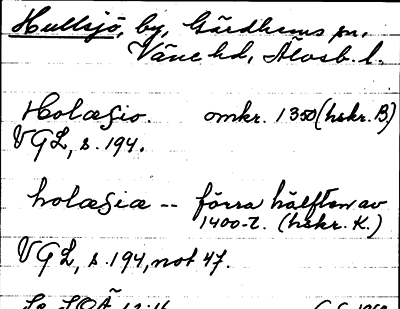 Hullsjö, by, Gärdhems sn.
Väne hd, Älvsb. l.
Holæsio. omkr. 1350 (hskr. B)
VGL, s. 194.
holæsiæ -- förra hälften av
1400-t. (hskr. K.)
VGL, s. 194, not 47.
Se SOÄ 12: